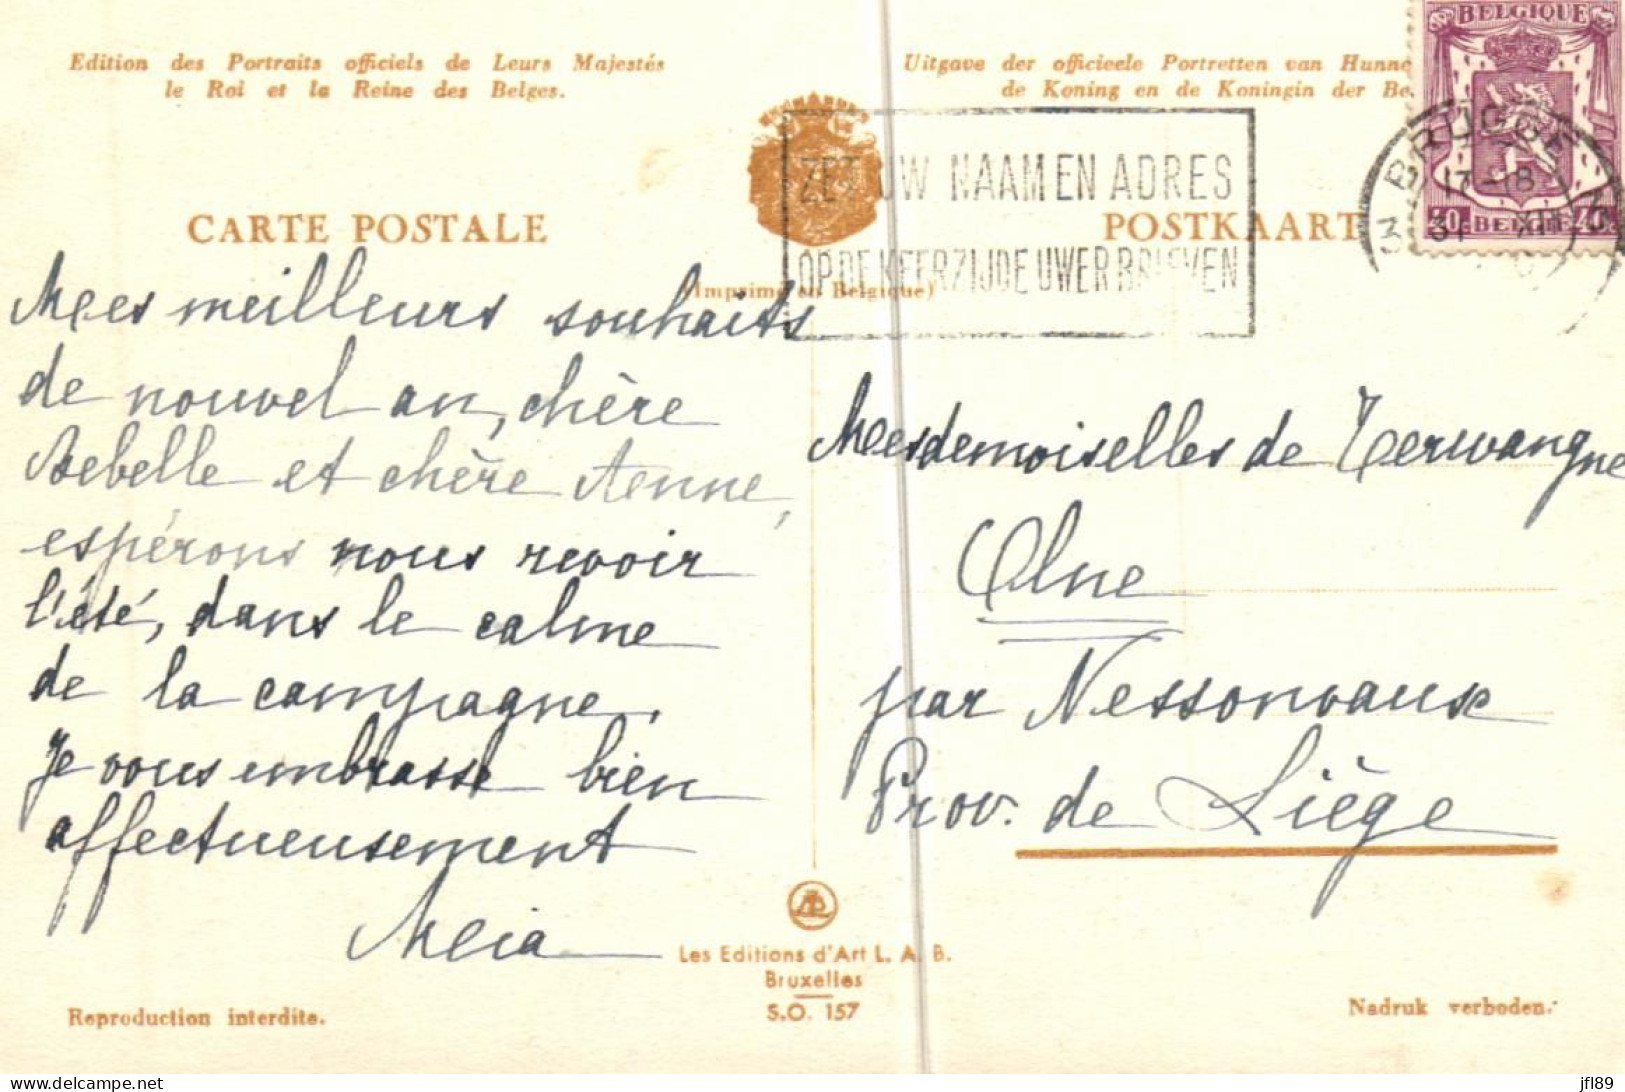 Edition des Portraits officiels de Leurs Majestés
le Roi et la Reine des Belges.
Uitgave der officieele Portretten van Hunne
de Koning en de Koningin der Be
BELGIQUE
BELGIE
40 40
BRUGGE
3 3
17-18
31 XII
ZET UW NAAM EN ADRES
OP DE KEERZIJDE UWER BRIEVEN
CARTE POSTALE
POSTKAART
(Imprimé en Belgique)
Mes meilleurs souhaits
de nouvel an, chère
Bebelle et chère Aenne,
espérons nous revoir
l'été, dans le calme
de la campagne.
Je vous embrasse bien
affectueusement
Mia
Mesdemoiselles de Terwangne
Olne
par Nessonvaux
Prov. de Liège
Les Editions d'Art L. A. B.
Bruxelles
S.O. 157
Reproduction interdite.
Nadruk verboden.
jfl89